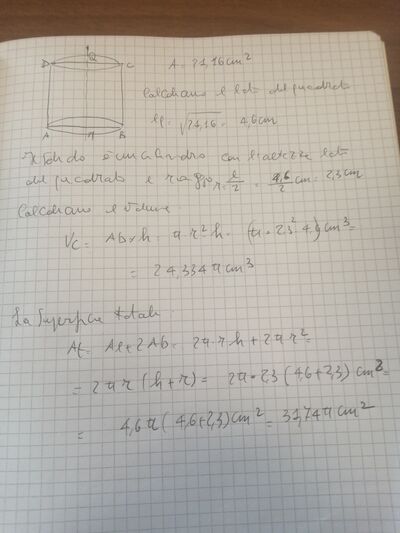 D Q C
A = 21,16 cm²
Calcoliamo il lato del quadrato
ll = √21,16 = 4,6 cm
A M B
Il solido è un cilindro con l'altezza lato
del quadrato e raggio r = l/2 = 4,6/2 cm = 2,3 cm
Calcoliamo il volume
Vc = Ab × h = π r² h = (π • 2,3² • 4,6) cm³ =
= 24,334 π cm³
La superficie totale
At = Al + 2Ab = 2π • r h + 2π r² =
= 2 π r (h + r) = 2π • 2,3 (4,6 + 2,3) cm² =
= 4,6 π (4,6 + 2,3) cm² = 31,74 π cm²